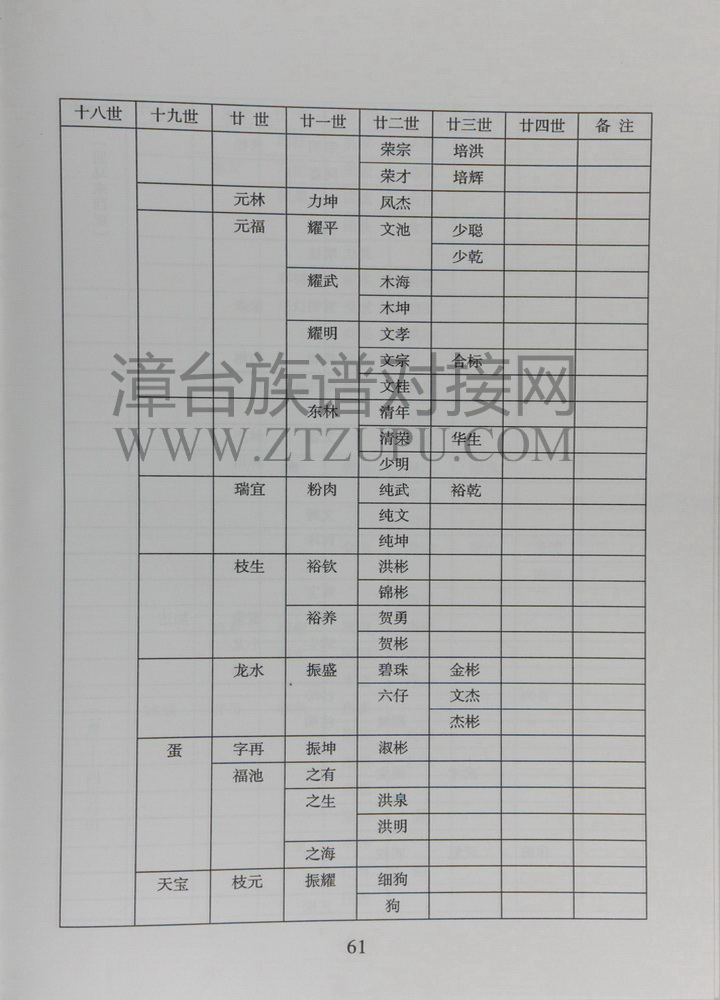 十八世 十九世 廿 世 廿一世 廿二世 廿三世 廿四世 备 注
荣宗 培洪
荣才 培辉
元林 力坤 凤杰
元福 耀平 文池 少聪
少乾
耀武 木海
木坤
耀明 文孝
文宗 合标
文桂
漳台族谱对接网
东林 清年
清荣 华生
WWW.ZTZUPU.COM
少明
瑞宜 粉肉 纯武 裕乾
纯文
纯坤
枝生 裕钦 洪彬
锦彬
裕养 贺勇
贺彬
龙水 振盛 碧珠 金彬
六仔 文杰
杰彬
蛋 字再 振坤 淑彬
福池 之有
之生 洪泉
洪明
之海
天宝 枝元 振耀 细狗
狗
61